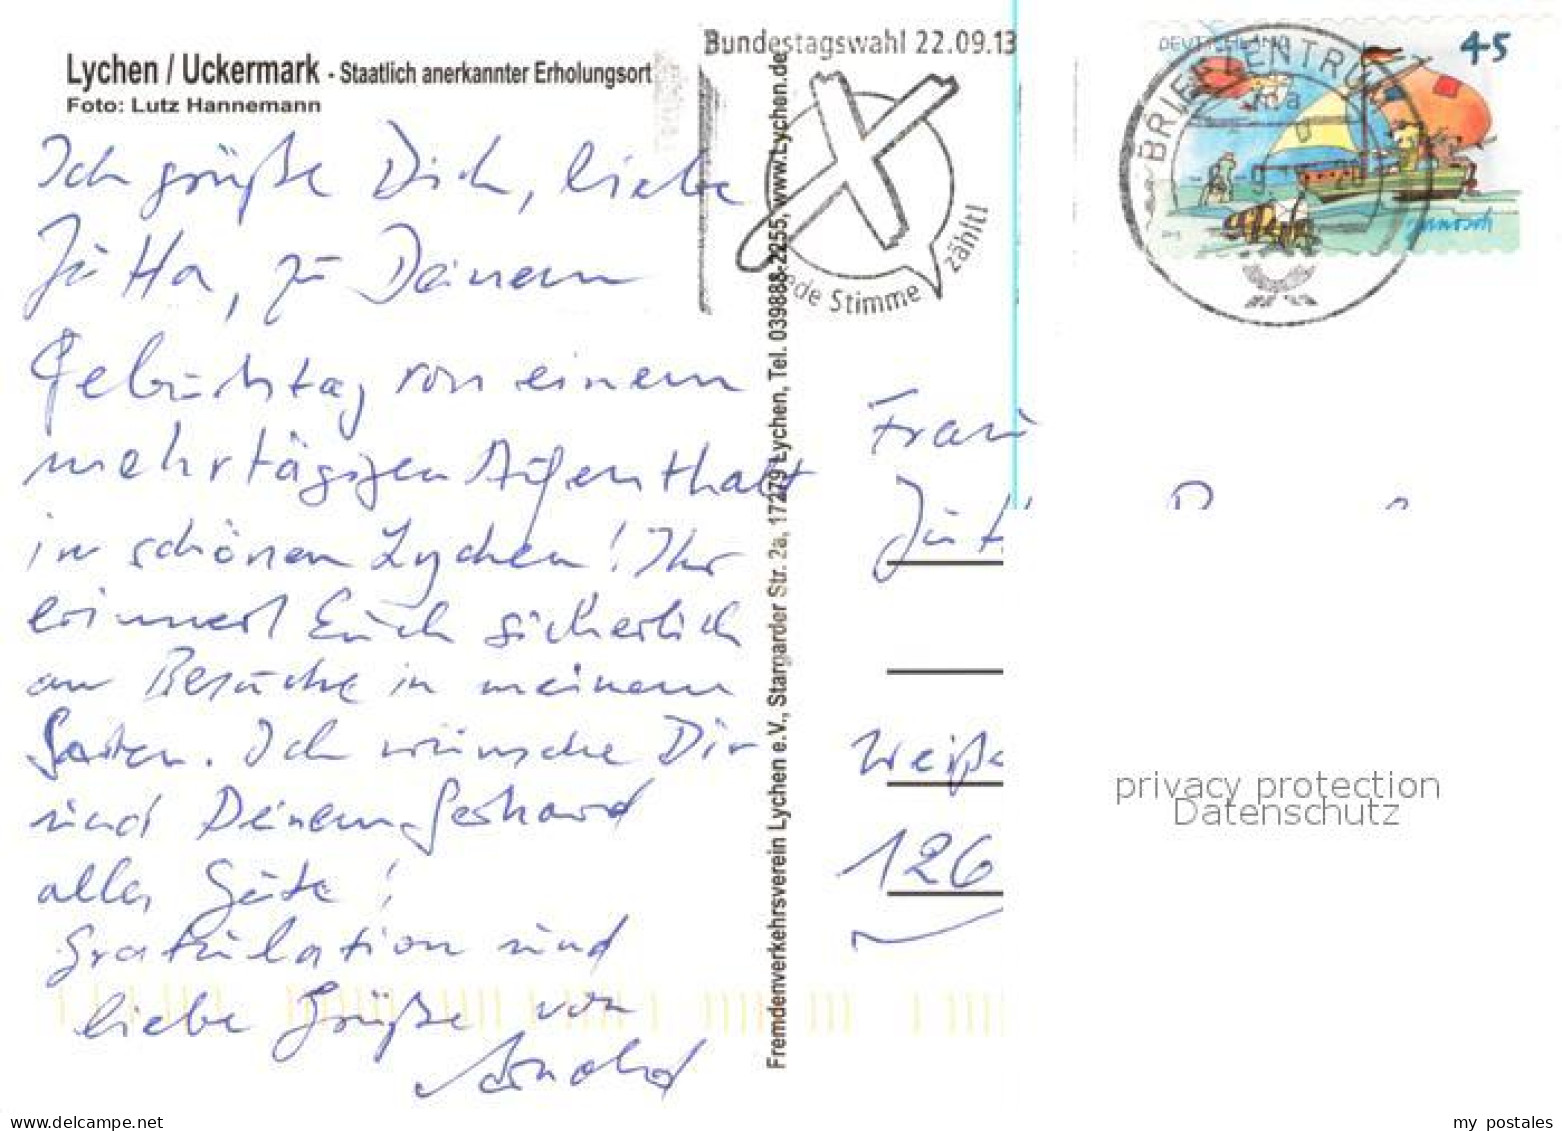 Lychen / Uckermark - Staatlich anerkannter Erholungsort
Foto: Lutz Hannemann
Ich grüße Dich, liebe
Jutta, zu Deinem
Geburtstag von einem
mehrtägigen Aufenthalt
in schönen Lychen! Ihr
erinnert Euch sicherlich
an Besuche in meinem
Garten. Ich wünsche Dir
und Deinem Gerhard
alles Gute!
Gratulation und
liebe Grüße von
Arnold
Fremdenverkehrsverein Lychen e.V., Stargarder Str. 2a, 17279 Lychen, Tel. 039888-2255, www.Lychen.de
Bundestagswahl 22.09.13
Jede Stimme zählt!
DEUTSCHLAND 45
BRIEFZENTRUM
janosch
Frau
Jutt
Weiße
126
privacy protection
Datenschutz
my postales